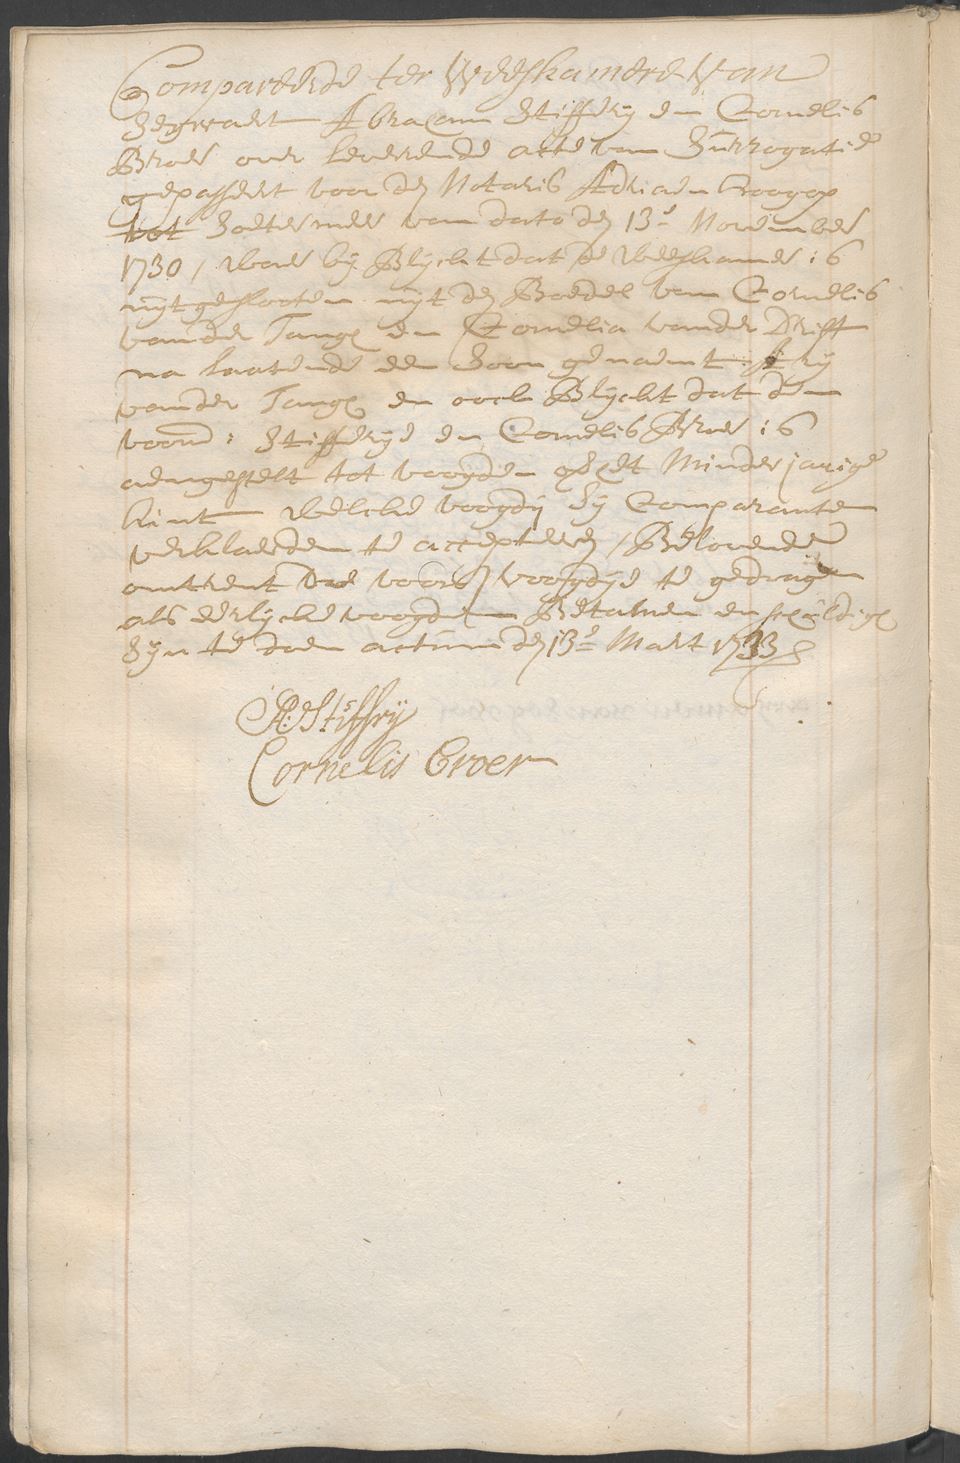 Compareerde ter Weeskamere Van
Segwaert Abraham Stiffry en Cornelis
Broer over leverende acte van Surrogatie
gepasseert voor den Notaris Adriaen
tot Soetermeer van dato den 13e November
1730, waer bij Blijckt dat de Weeskamer is
uijtgeslooten uijt den Boedel van Cornelis
vander Tang en Cornelia vander Drift
na laatende een soon genaemt Ary
vander Tang en oock Blijckt dat den
voorn: Stiffrije en Cornelis Broer is
aengestelt tot voogden over het Minderjarige
kint welcke voogdij sij Comparanten
verklaerden te accepteren, Beloovende
omtrent de voors. voogdije te gedragen
als eerlijcke voogden Betamen en schuldigh
sijn te doen actum den 13e Maert 1733
A: Stiffry
Cornelis Broer